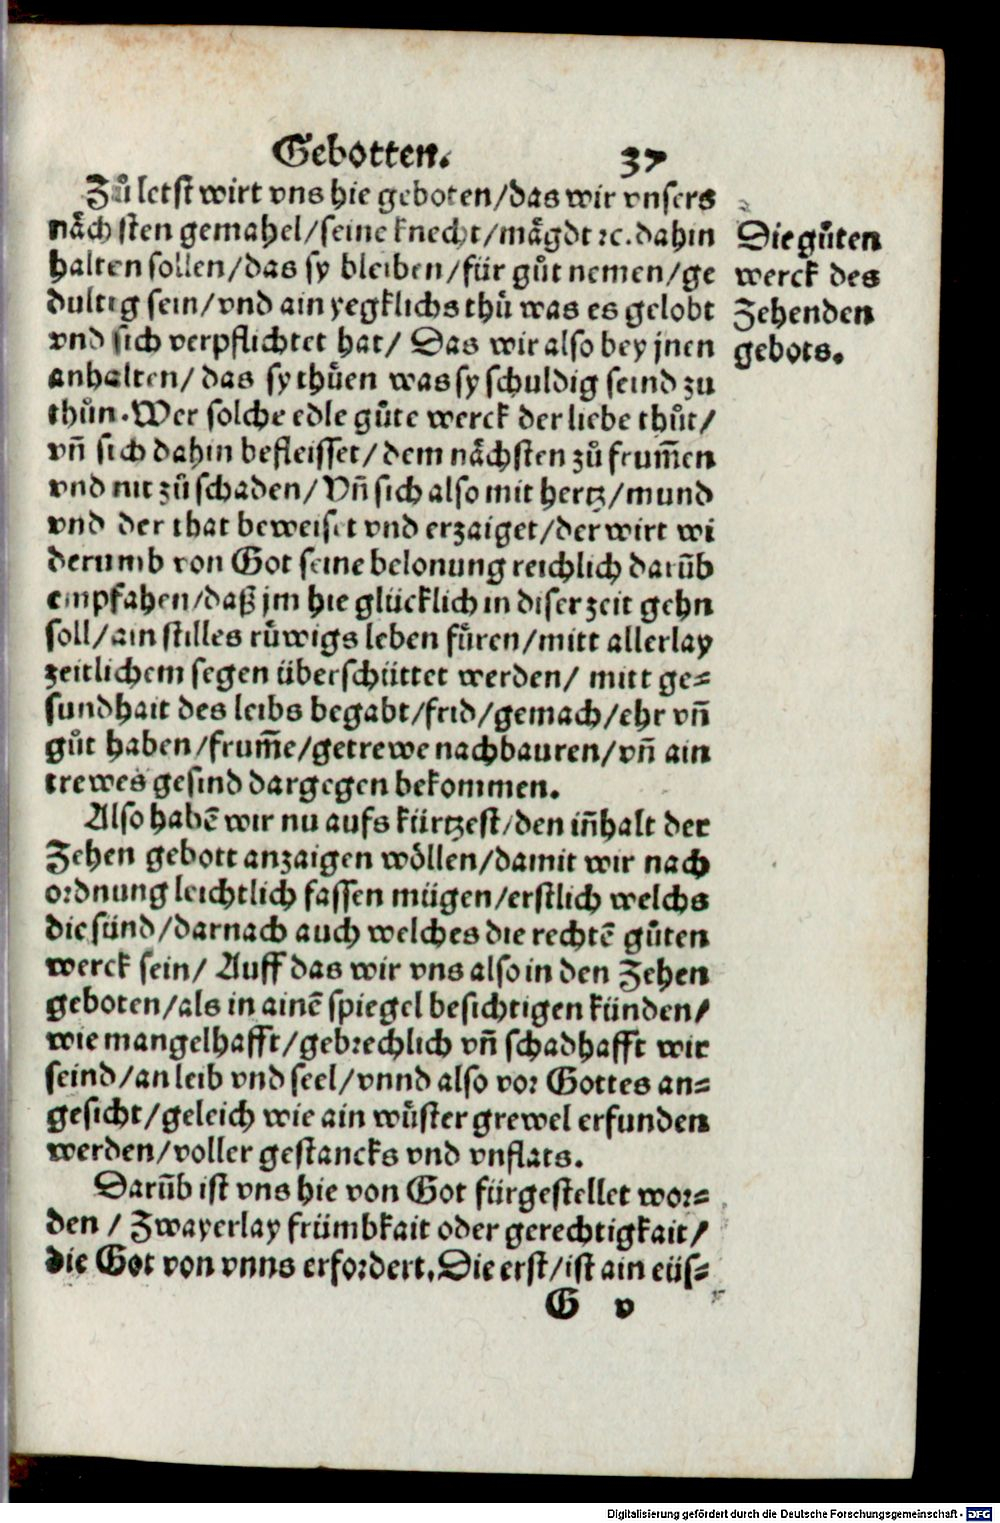 Gebotten. 37
Zů letst wirt vns hie geboten/das wir vnsers
nåchsten gemahel/seine knecht/mågdt ꝛc. dahin
halten sollen/das sy bleiben/für gůt nemen/ge
dultig sein/vnd ain yegklichs thů was es gelobt
vnd sich verpflichtet hat/ Das wir also bey jnen
anhalten/ das sy thůen was sy schuldig seind zu
thůn. Wer solche edle gůte werck der liebe thůt/
vñ sich dahin befleisset/dem nåchsten zů frum̃en
vnd nit zů schaden/Vñ sich also mit hertz/mund
vnd der that beweiset vnd erzaiget/der wirt wi
derumb von Got seine belonung reichlich darũb
empfahen/daß jm hie glücklich in diser zeit gehn
soll/ain stilles růwigs leben fůren/mitt allerlay
zeitlichem segen überschüttet werden/ mitt ge⸗
sundhait des leibs begabt/frid/gemach/ehr vñ
gůt haben/frum̃e/getrewe nachbauren/vñ ain
trewes gesind dargegen bekommen.
Also habẽ wir nu aufs kürtzest/den iñhalt der
Zehen gebott anzaigen wöllen/damit wir nach
ordnung leichtlich fassen mügen/erstlich welchs
die sünd/darnach auch welches die rechtẽ gůten
werck sein/ Auff das wir vns also in den Zehen
geboten/als in ainẽ spiegel besichtigen künden/
wie mangelhafft/gebrechlich vñ schadhafft wir
seind/an leib vnd seel/vnnd also vor Gottes an⸗
gesicht/geleich wie ain wůster grewel erfunden
werden/voller gestancks vnd vnflats.
Darũb ist vns hie von Got fürgestellet wor⸗
den / Zwayerlay frümbkait oder gerechtigkait/
die Got von vnns erfordert. Die erst/ist ain eüs⸗
G v
Die gůten
werck des
Zehenden
gebots.
Digitalisierung gefördert durch die Deutsche Forschungsgemeinschaft - DFG